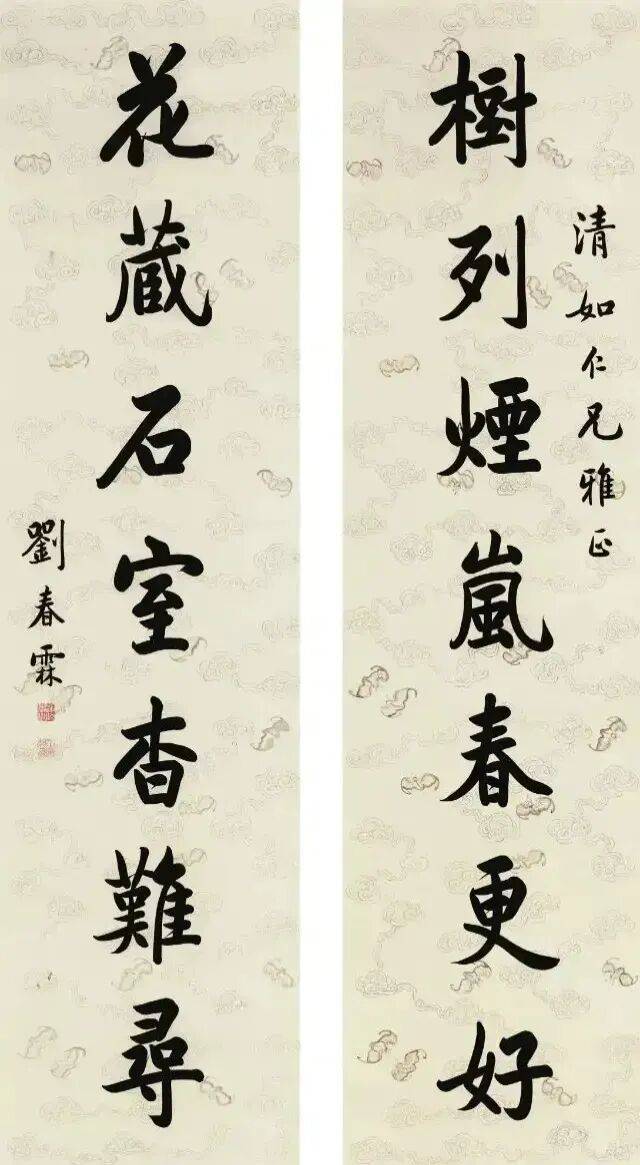 清如仁兄雅正
樹列煙嵐春更好
花蔵石室杳難尋
劉春霖